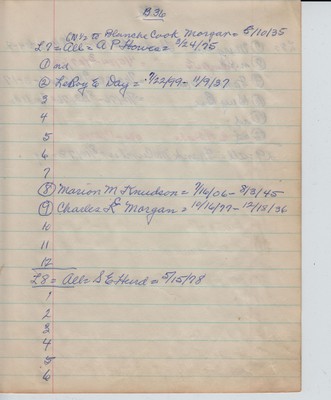 B36
CNVS to Blanche Cook Morgan = 5/10/35
L7 = All = A P Howes = 3/24/75
1 nd
2 LeRoy E Day = 7/22/99 - 11/9/37
3
4
5
6
7
8 Marion M Knudson = 9/16/06 - 8/3/45
9 Charles L Morgan = 10/16/77 - 12/18/36
10
11
12
L8 = All = S E Heird = 5/15/78
1
2
3
4
5
6